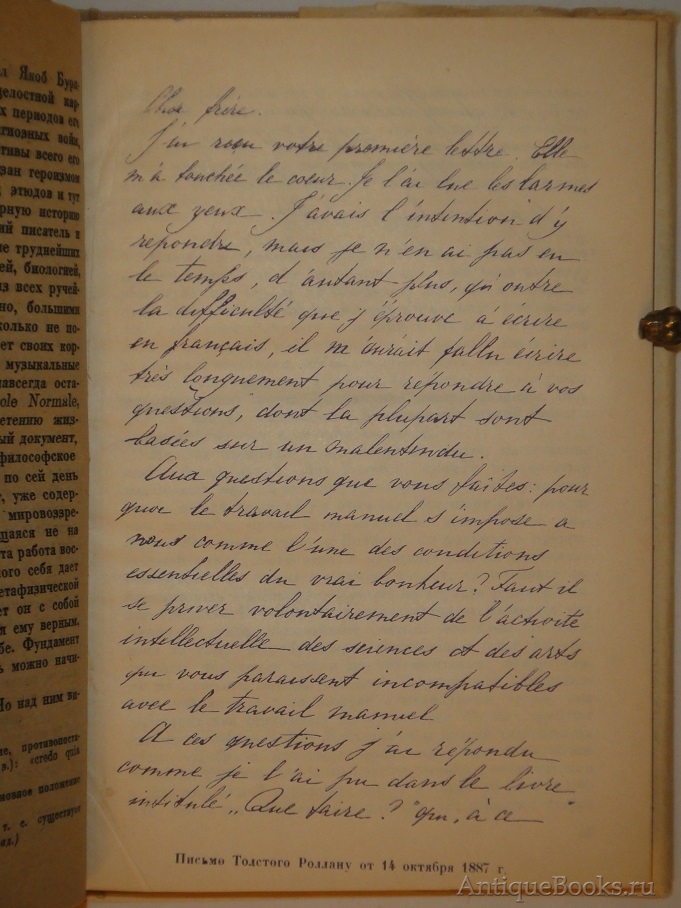 л Якоб Бурк-
целостной кар-
х периодов его
игиозных войн,
тивы всего его
зан героизмом
этюдов и тут
рную историю
ий писатель в
ие труднейших
ей, биологией,
из всех ручей-
но, большими
сколько не по-
ет своих кор-
музыкальные
навсегда оста-
ole Normale,
етению жиз-
ый документ,
философское
по сей день
, уже содер-
мировоззре-
щаяся не на
та работа вос-
мого себя дает
етафизической
ет он с собой
я ему верным.
бе. Фундамент
ь можно начи-
Но над ним ви-
ие, противопоста-
в.): «credo quia
новное положение
т. е. существует
Cher frère.
J'ai reçu votre première lettre. Elle
m'a touchée le coeur. Je l'ai lue les larmes
aux yeux. J'avais l'intention d'y
repondre, mais je n'en ai pas eu
le temps, d'autant plus, qu'outre
la difficulté que j'éprouve à écrire
en français, il m'aurait fallu écrire
très longuement pour répondre à vos
questions, dont la plupart sont
basées sur un malentendu.
Aux questions que vous faites: pour
quoi le travail manuel s'impose a
nous comme l'une des conditions
essentielles du vrai bonheur? Faut il
se priver volontairement de l'activité
intellectuelle des sciences et des arts
qui vous paraissent incompatibles
avec le travail manuel
A ces questions j'ai répondu
comme je l'ai pu dans le livre
intitulé „Que faire?" qui, à ce
Письмо Толстого Роллану от 14 октября 1887 г.
AntiqueBooks.ru